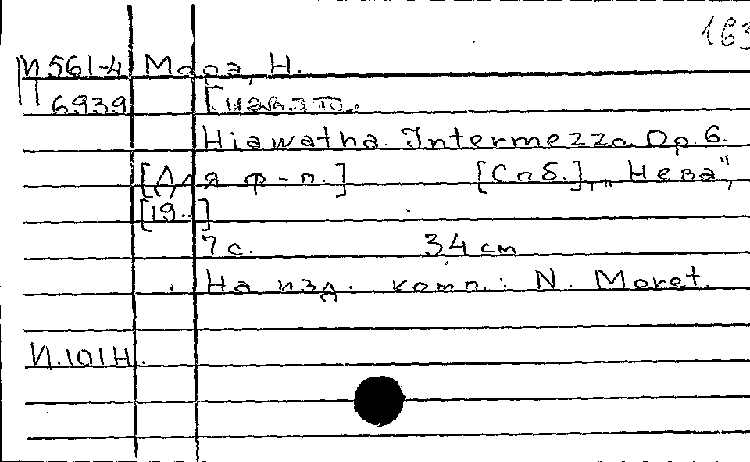 163
М 561-4 Мора, Н.
6939
Hiawatha. Intermezzo. Op. 6.
[Для ф-п.] [Спб.], „Нева",
[19..]
7 с. 34 см
На изд. комп.: N. Moret.
И.101Н.